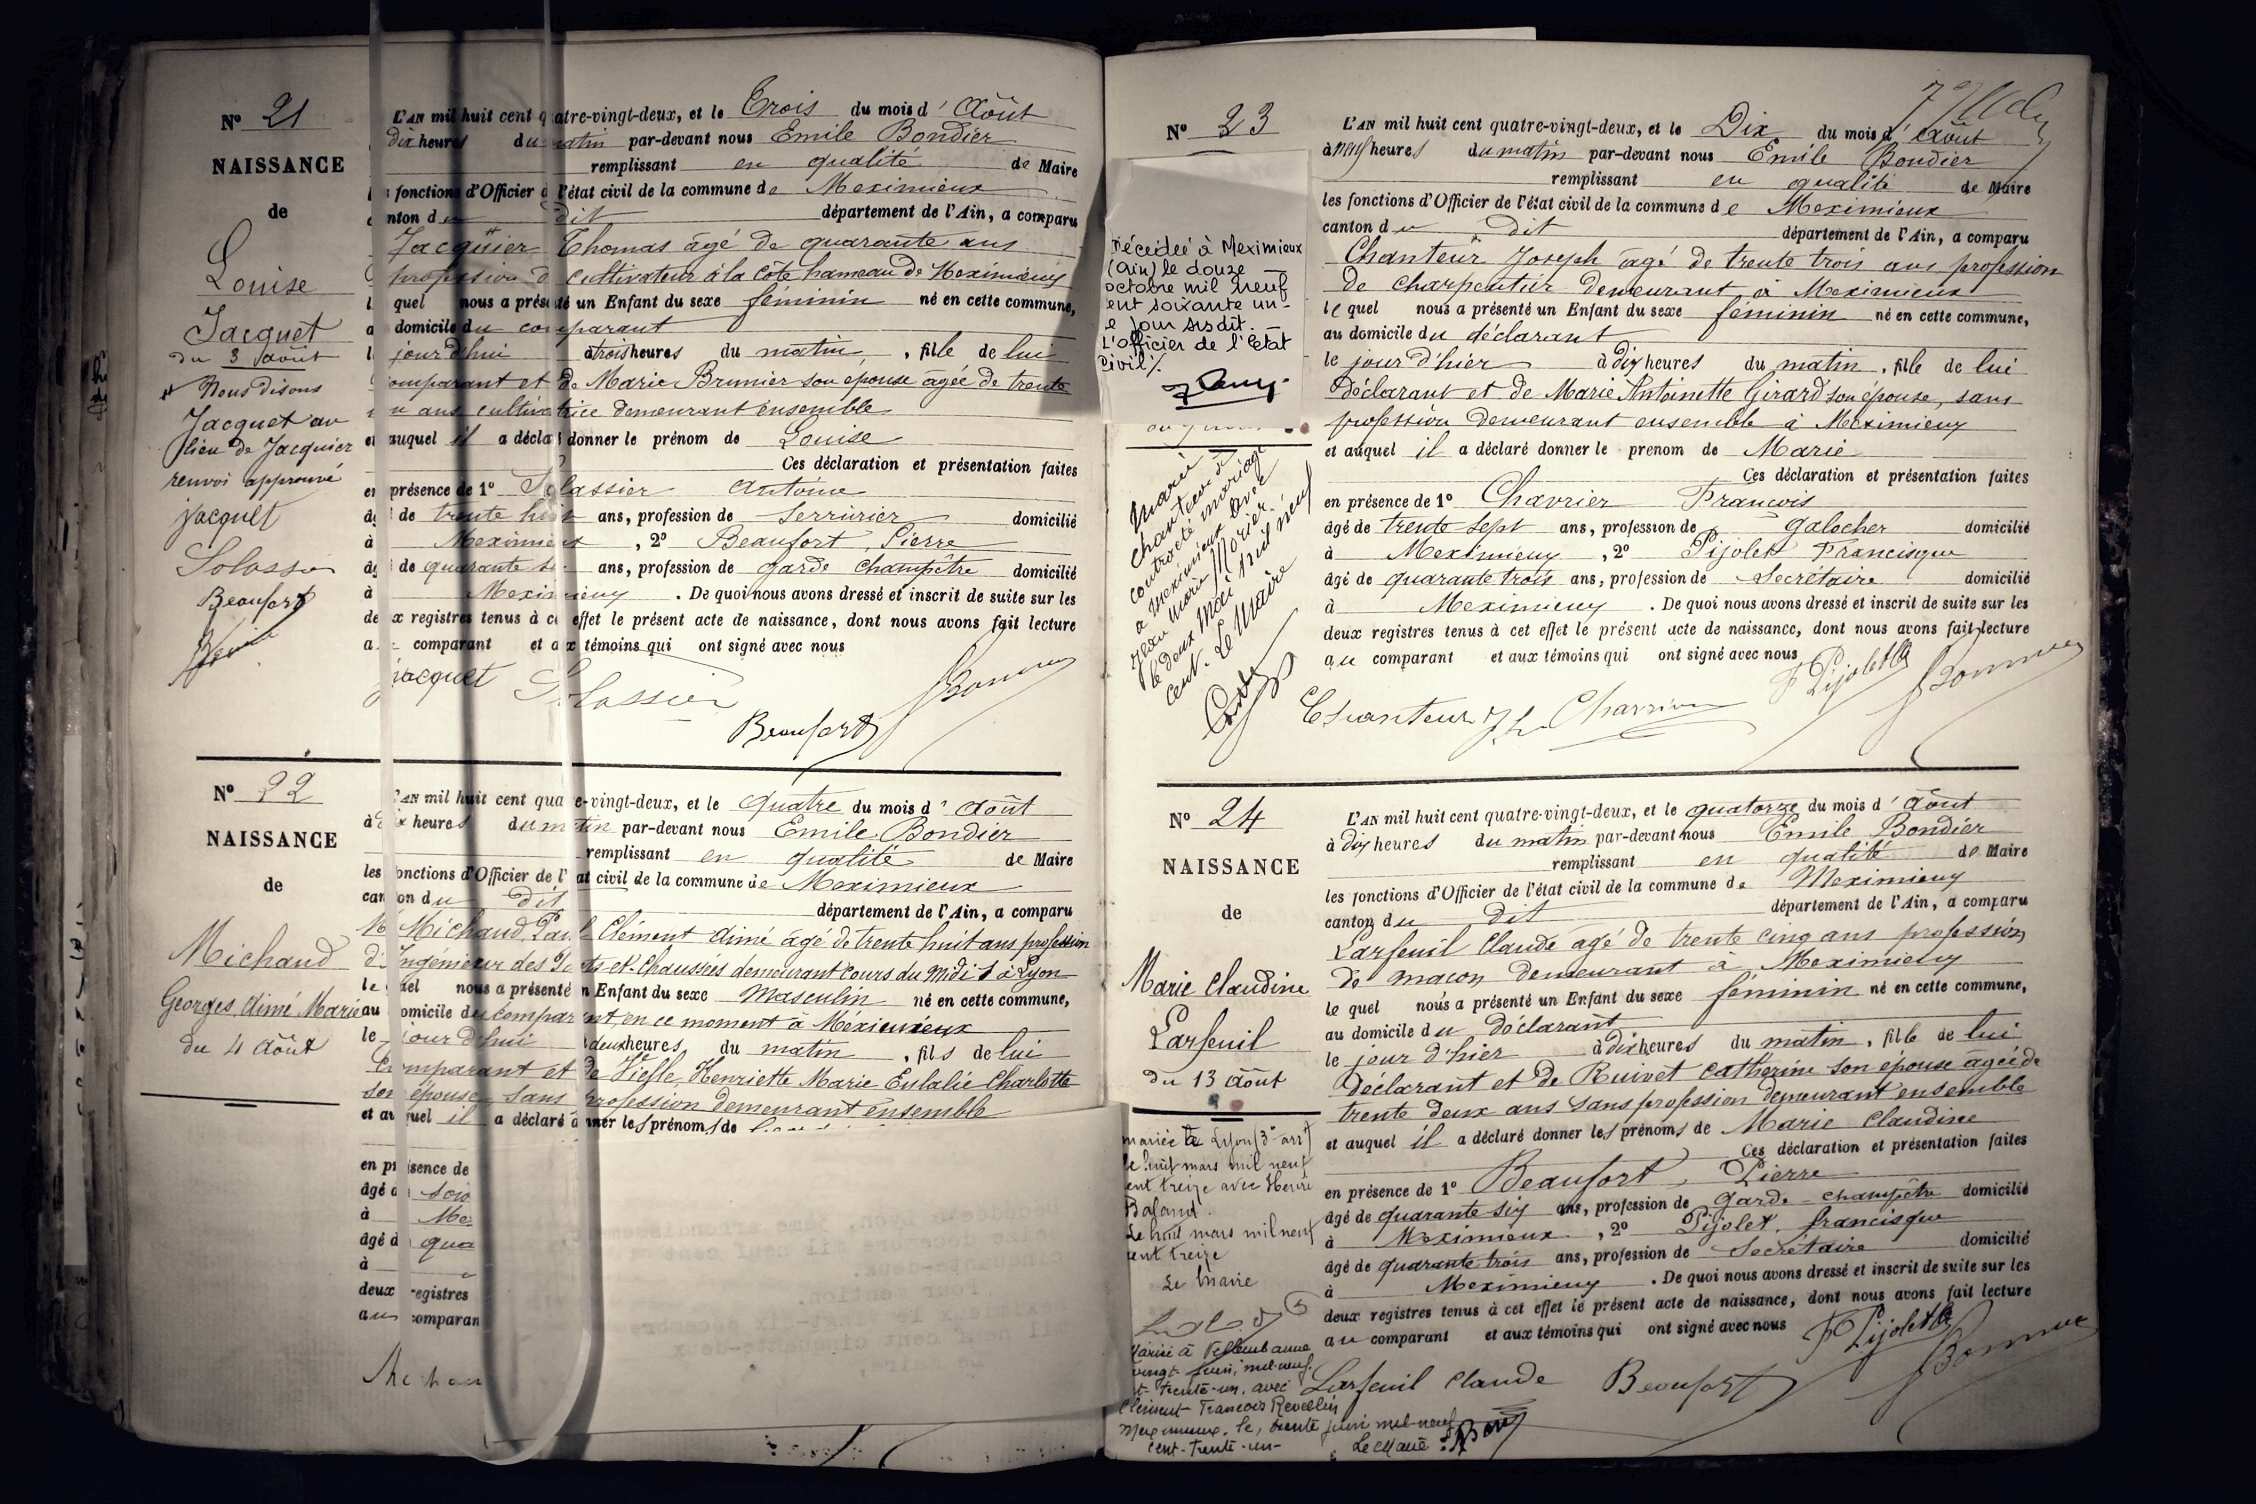 Nº 21
NAISSANCE
de
Louise
Jacquet
du 3 Août
Nous disons
Jacquet au
lieu de Jacquier
renvoi approuvé
Jacquet
Solassier
Beaufort
L'AN mil huit cent quatre-vingt-deux, et le Trois du mois d' Août
dix heures du matin par-devant nous Emile Bondier
remplissant en qualité de Maire
fonctions d'Officier de l'état civil de la commune de Meximieux
canton du dit département de l'Ain, a comparu
Jacquier Thomas âgé de quarante ans
profession de cultivateur à la côte hameau de Meximieux
quel nous a présenté un Enfant du sexe féminin né en cette commune,
domicile du comparant
jour d'hui à trois heures du matin, fille de lui
comparant et de Marie Brunier son epouse âgée de trente
ans cultivatrice demeurant ensemble
et auquel il a déclaré donner le prénom de Louise
Ces déclaration et présentation faites
en présence de 1º Solassier Antoine
âgé de trente huit ans, profession de Serrurier domicilié
à Meximieux, 2º Beaufort Pierre
âgé de quarante ans, profession de garde champêtre domicilié
à Meximieux. De quoi nous avons dressé et inscrit de suite sur les
deux registres tenus à cet effet le présent acte de naissance, dont nous avons fait lecture
au comparant et aux témoins qui ont signé avec nous
Jacquet Solassier
Beaufort
Nº 22
NAISSANCE
de
Michaud
Georges Aimé Marie
du 4 Août
L'AN mil huit cent quatre-vingt-deux, et le quatre du mois d' Août
à dix heures du matin par-devant nous Emile Bondier
remplissant en qualité de Maire
les fonctions d'Officier de l'état civil de la commune de Meximieux
canton du dit département de l'Ain, a comparu
Mr Michaud Paul Clément Aimé âgé de trente huit ans profession
d'Ingénieur des Ponts et Chaussées demeurant Cours du Midi 1 à Lyon
lequel nous a présenté un Enfant du sexe Masculin né en cette commune,
au domicile du comparant, en ce moment à Méximieux
le jour d'hui à deux heures du matin, fils de lui
Comparant et de Henriette Marie Eulalie Charlotte
son épouse sans profession demeurant ensemble
et auquel il a déclaré donner les prénoms de
en présence de
âgé d
à Me
âgé d qua
à
deux registres
au comparan
Nº 23
Décédée à Meximieux
(Ain) le douze
octobre mil neuf
cent soixante un
le jour susdit.
L'officier de l'Etat
civil
Marie
Chanteur a
contracté mariage
à Meximieux avec
Jean Marie Morier
le deux Mai mil neuf
cent. Le Maire
L'AN mil huit cent quatre-vingt-deux, et le Dix du mois d' Août
à neuf heures du matin par-devant nous Emile Bondier
remplissant en qualité de Maire
les fonctions d'Officier de l'état civil de la commune de Meximieux
canton du dit département de l'Ain, a comparu
Chanteur Joseph âgé de trente trois ans profession
de charpentier demeurant à Meximieux
le quel nous a présenté un Enfant du sexe féminin né en cette commune,
au domicile du déclarant
le jour d'hier à dix heures du matin, fille de lui
déclarant et de Marie Antoinette Girard son épouse, sans
profession demeurant ensemble à Meximieux
et auquel il a déclaré donner le prenom de Marie
Ces déclaration et présentation faites
en présence de 1º Chavrier Francois
âgé de trente sept ans, profession de galocher domicilié
à Meximieux, 2º Pijolet Francisque
âgé de quarante trois ans, profession de Secrétaire domicilié
à Meximieux. De quoi nous avons dressé et inscrit de suite sur les
deux registres tenus à cet effet le présent acte de naissance, dont nous avons fait lecture
au comparant et aux témoins qui ont signé avec nous
Chanteur
Nº 24
NAISSANCE
de
Marie Claudine
Larfeuil
du 13 Août
mariée à Lyon (3e arrt)
le huit mars mil neuf
cent treize avec Henri
Le huit mars mil neuf
cent treize
Le Maire
Mariée à Villeurbanne
vingt juin, mil-neuf
cent-trente-un, avec
Clément François Revellin
Meximieux, le, trente juin mil-neuf
cent-trente-un-
Le Maire:
L'AN mil huit cent quatre-vingt-deux, et le quatorze du mois d' Août
à dix heures du matin par-devant nous Emile Bondier
remplissant en qualité de Maire
les fonctions d'Officier de l'état civil de la commune de Meximieux
canton du dit département de l'Ain, a comparu
Larfeuil Claude âgé de trente cinq ans profession
de maçon demeurant à Meximieux
le quel nous a présenté un Enfant du sexe féminin né en cette commune,
au domicile du déclarant
le jour d'hier à dix heures du matin, fille de lui
déclarant et de Ruivet Catherine son épouse âgée de
trente deux ans sans profession demeurant ensemble
et auquel il a déclaré donner les prénoms de Marie Claudine
Ces déclaration et présentation faites
en présence de 1º Beaufort, Pierre
âgé de quarante six ans, profession de garde-champêtre domicilié
à Meximieux, 2º Pijolet, francisque
âgé de quarante trois ans, profession de Secrétaire domicilié
à Meximieux. De quoi nous avons dressé et inscrit de suite sur les
deux registres tenus à cet effet le présent acte de naissance, dont nous avons fait lecture
au comparant et aux témoins qui ont signé avec nous
Larfeuil Claude Beaufort